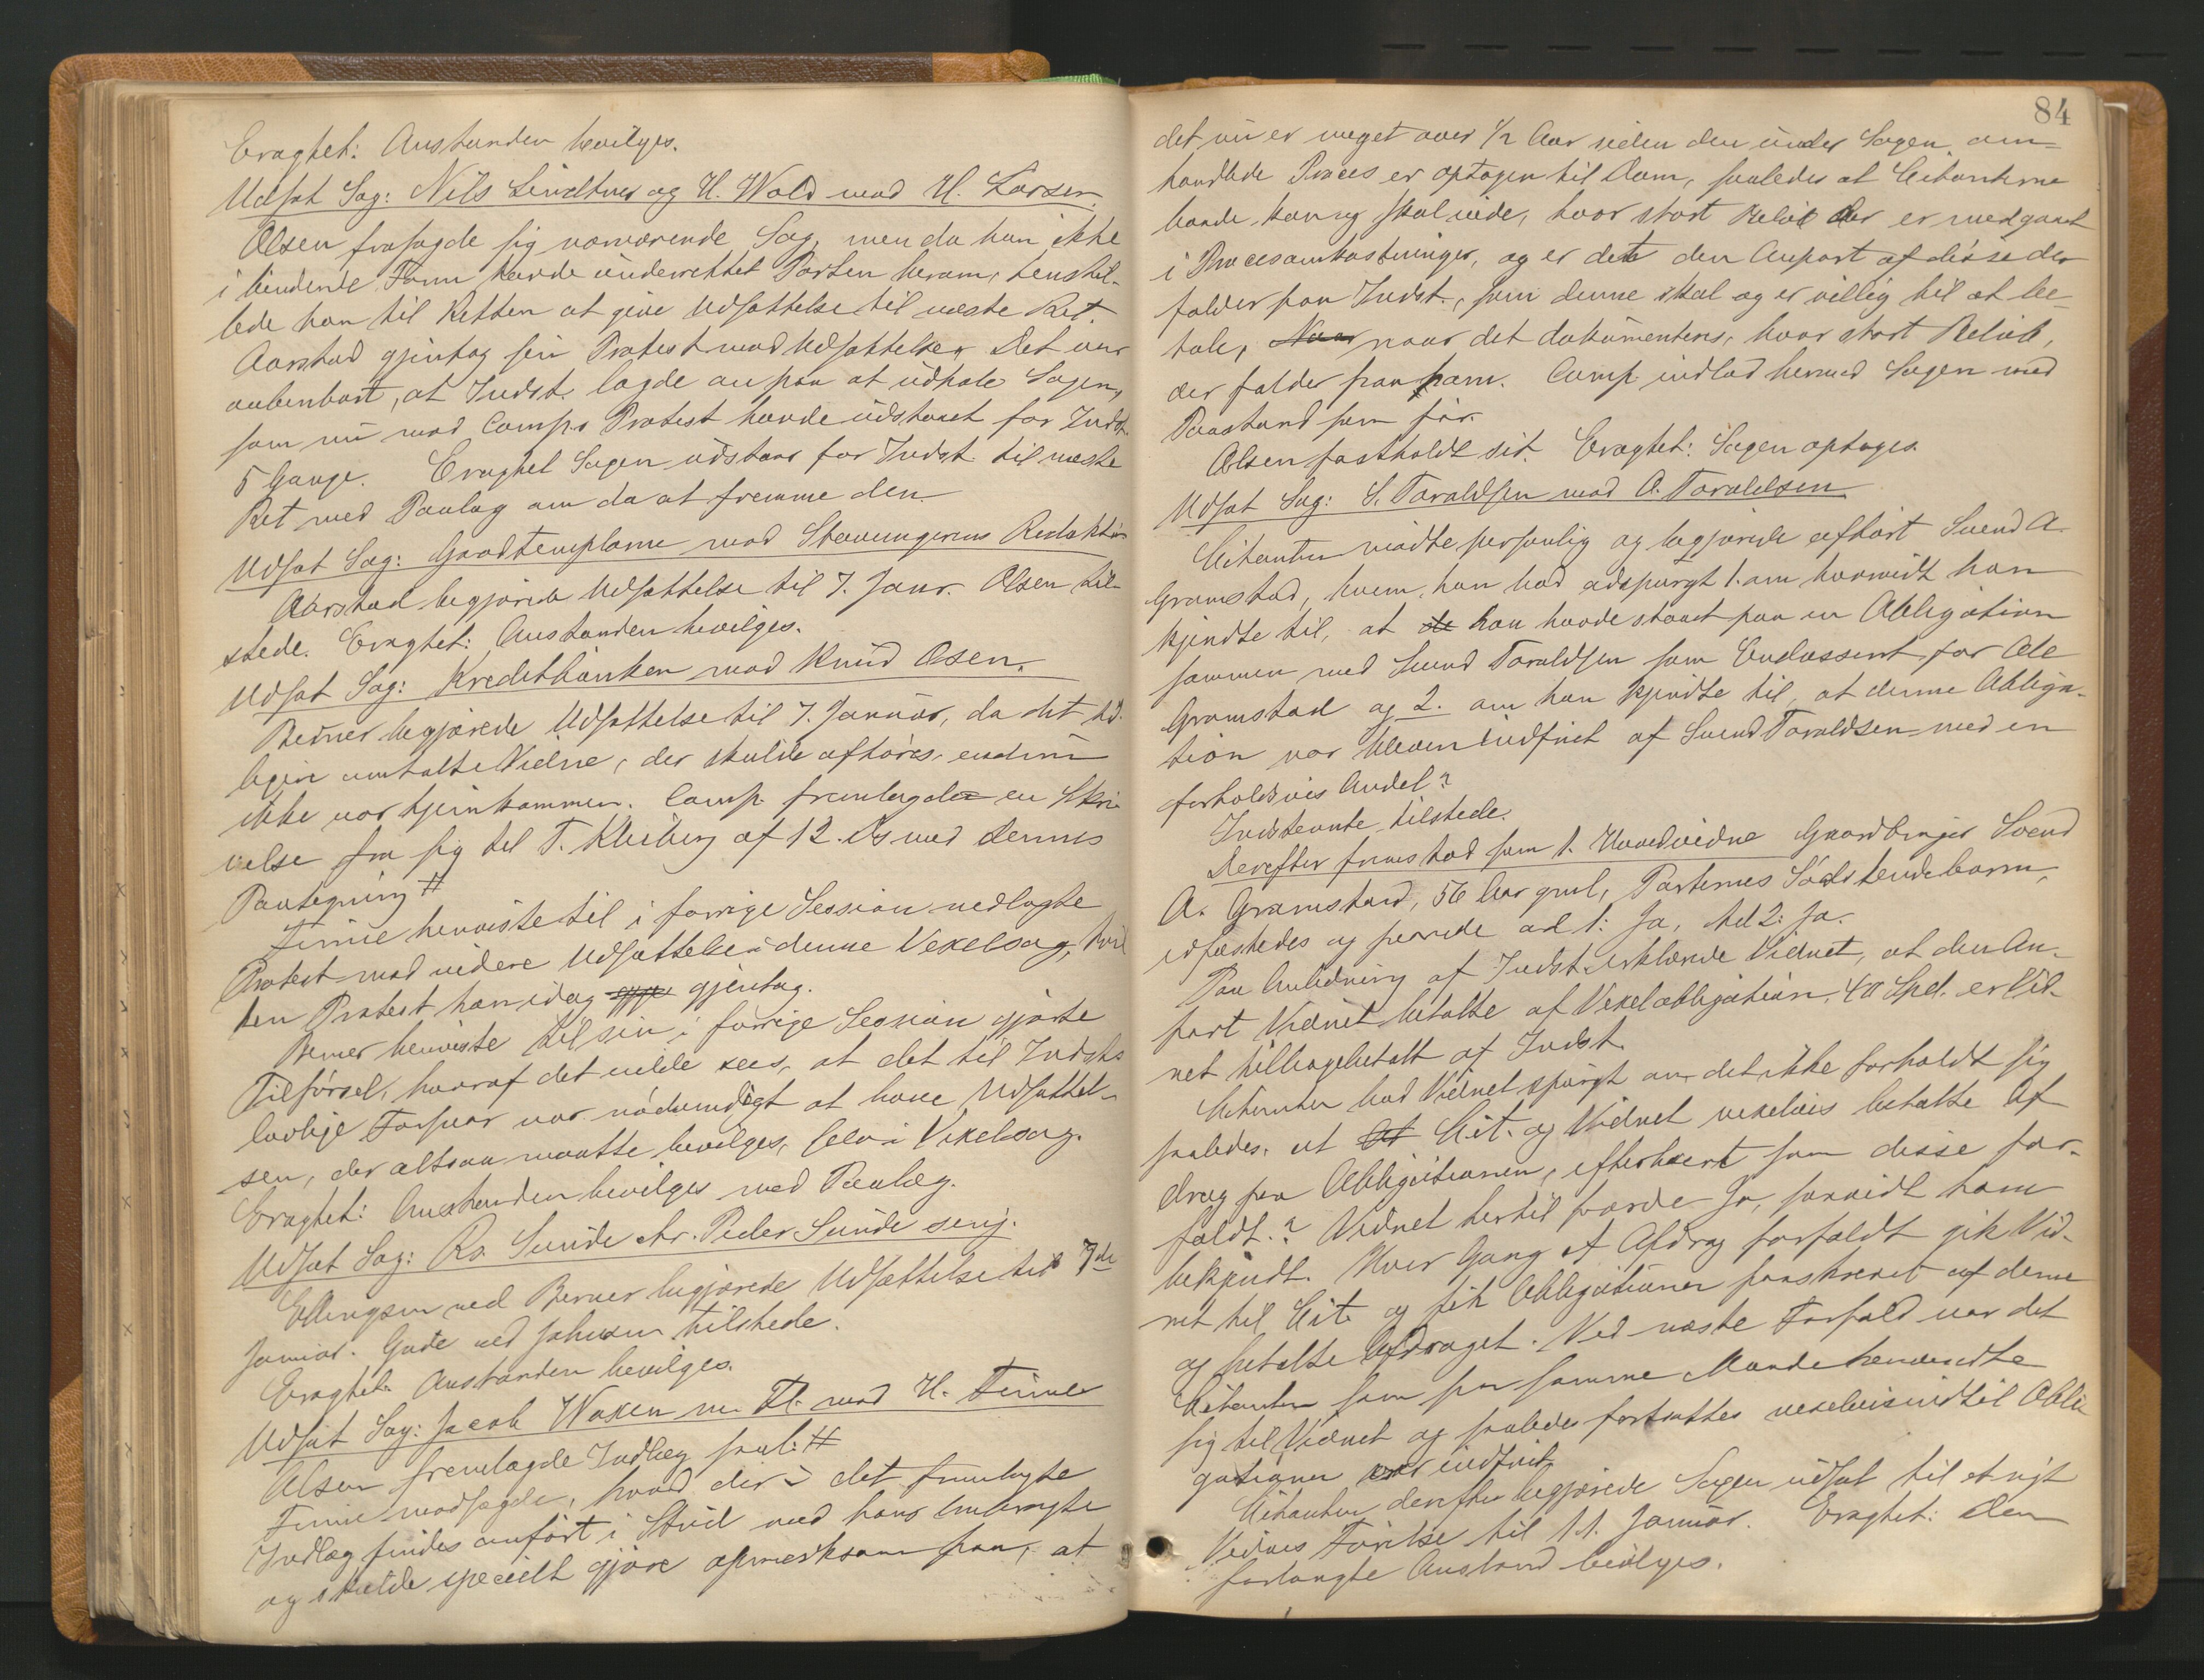 Eragtet: Anstanden bevilges.
Udsat Sag: Nils Lindtner og H. Wold mod H. Larsen.
Olsen frasagde sig nærværende Sag, men da han ikke
i bindende Form havde underrettet Parten herom, henstil-
lede han til Retten at give Udsættelse til næste Ret.
Aarstad gjentog sin Protest mod Udsættelse. Det var
aabenbart, at Indst. lagde an paa at udhale Sagen,
som nu mod Comp.s Protest havde udstaaet for Indst.
5 Gange. Eragtet Sagen udstaar for Indst. til næste
Ret med Paalæg om da at fremme den
Udsat Sag: Goodtemplarne mod Stavangerens Redaktör
Aarstad begjærede Udsættelse til 7. Janr. Olsen til-
stede. Eragtet: Anstanden bevilges.
Udsat Sag: Kreditbanken mod Knud Osen.
Berner begjærede Udsættelse til 7. Januar, da det tid-
ligere omtalte Vidne, der skulde afhöres, endnu
ikke var hjemkommen. Comp. fremlagde en Skri-
velse fra sig til T. Kleiberg af 12. ds med dennes
Paategning #
Finne henviste til i forrige Session nedlagte
Protest mod videre Udsættelse i denne Vexelsag, hvil
ken Protest han idag gjentog.
Berner henviste til sin i forrige Session gjorte
Tilförsel, hvoraf det vilde sees, at det til Indsts
lovlige Forsvar var nödvendigt at have Udsættel-
sen, der altsaa maatte bevilges, selv i Vexelsag.
Eragtet: Anstanden bevilges med Paalæg.
Udsat Sag: Rs. Sunde ctr. Peder Sunde senj.
Ellingsen ved Berner begjærede Udsættelse til 7de
Januar. Gade ved Johnsen tilstede.
Eragtet: Anstanden bevilges.
Udsat Sag: Jacob Waxen m. Fl. mod H. Finne
Olsen fremlagde Indlæg saal: #
Finne modsagde, hvad der i det fremlagte
Indlæg findes anfört i Strid med hans Anbragte
og skulde specielt gjöre opmerksom paa, at
84
det nu er meget over 1/2 Aar siden den under Sagen om-
handlede Proces er optagen til Dom, saaledes at Citanterne
baade kan og skal vide, hvor stort Belöb der er medgaaet
i Procesomkostninger, og er det den Anpart af disse der
falder paa Indst., som denne skal og er villig til at be-
tale, naar det dokumenteres, hvor stort Belöb,
der falder paa ham. Comp. indlod hermed Sagen med
Paastand som för.
Olsen fastholdt sit. Eragtet: Sagen optages.
Udsat Sag: S. Taraldsen mod A. Taraldsen
Citanten mödte personlig og begjærede afhört Svend A.
Gramstad, hvem han bad adspurgt 1. om hvorvidt han
kjendte til, at han havde staaet paa en Obligation
sammen med Svend Taraldsen som Endossent for Ole
Gramstad og 2. om han kjendte til, at denne Obliga-
tion var bleven indfriet af Svend Taraldsen med en
forholdsvis Andel?
Indstevnte tilstede.
Derefter fremstod som 1. Hovedvidne Gaardbruger Svend
A. Gramstad, 56 Aar gml, Parternes Södskendebarn,
edfæstedes og svarede ad 1: Ja, til 2: Ja.
Paa Anledning af Indst. erklærede Vidnet, at den An-
part Vidnet betalte af Vexelobligation, 40 Spd. er Vid-
net tilbagebetalt af Indst.
Citanten bad Vidnet spurgt om det ikke forholdt sig
saaledes, at Cit. og Vidnet vexelvis betalte Af
drag paa Obligationen, efterhvert som disse for-
faldt.? Vidnet hertil svarede Ja, forsaavidt ham
bekjendt. Hver Gang et Afdrag forfaldt gik Vid-
net til Cit. og fik Obligationen paaskrevet af denne
og betalte Afdraget. Ved næste Forfald var det
Citanten som paa samme Maade henvendte
sig til Vidnet og saaledes fortsattes vexelvis indtil Obli
gationen var indfriet.
Citanten derefter begjærede Sagen udsat til et nyt
Vidnes Förelse til 11. Januar. Eragtet: Den
forlangte Anstand bevilges.